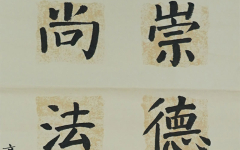 崇德
尚法